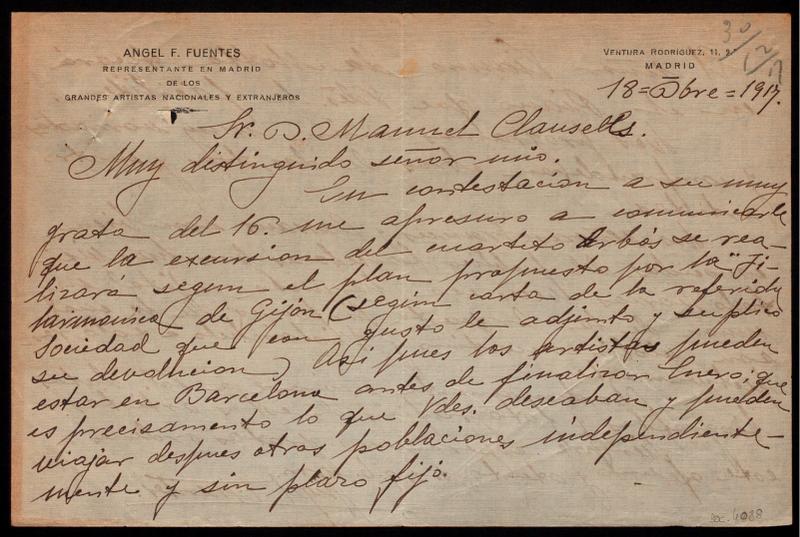 ANGEL F. FUENTES
REPRESENTANTE EN MADRID
DE LOS
GRANDES ARTISTAS NACIONALES Y EXTRANJEROS
VENTURA RODRÍGUEZ, 11, 2º
MADRID
18 = Dbre = 1917.
Sr. D. Manuel Clausells.
Muy distinguido señor mío.
En contestacion a su muy
grata del 16. me apresuro a comunicarle
que la excursion del cuarteto Arbós se rea-
lizará segun el plan propuesto por la "Fi-
larmonica de Gijón (según carta de la referida
Sociedad que con gusto le adjunto y suplico
su devolucion) Asi pues los artistas pueden
estar en Barcelona antes de finalizar Enero; que
es precisamento lo que Vdes. deseaban y pueden
viajar despues otras poblaciones independiente-
mente y sin plazo fijo.
Doc. 4088